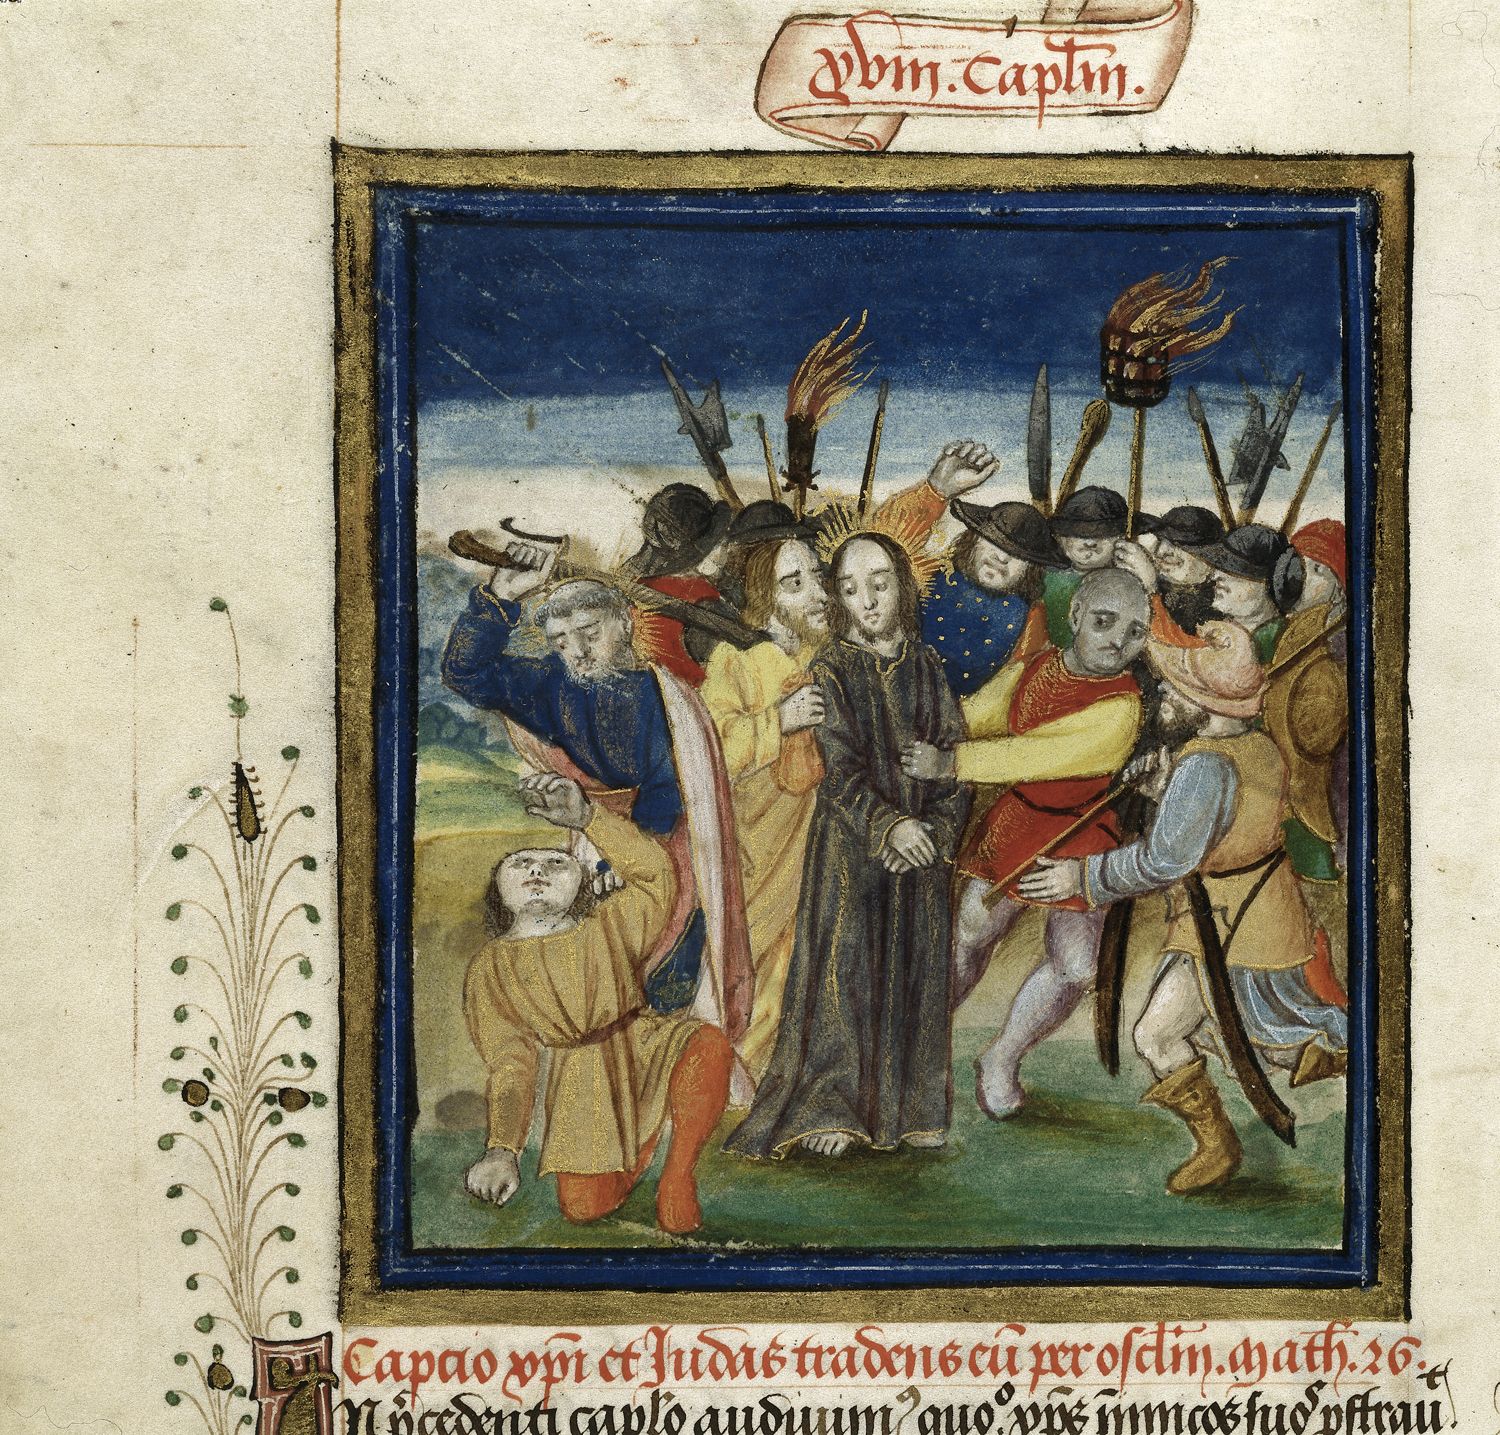 xviij. Capl̄m.
Capcio xp̄i et Iudas tradens eū per oscl̄m. Math. 26.
IN p̄cedenti caplo audiuim⁹ quo° xp̄s inimicos suos pstrauit